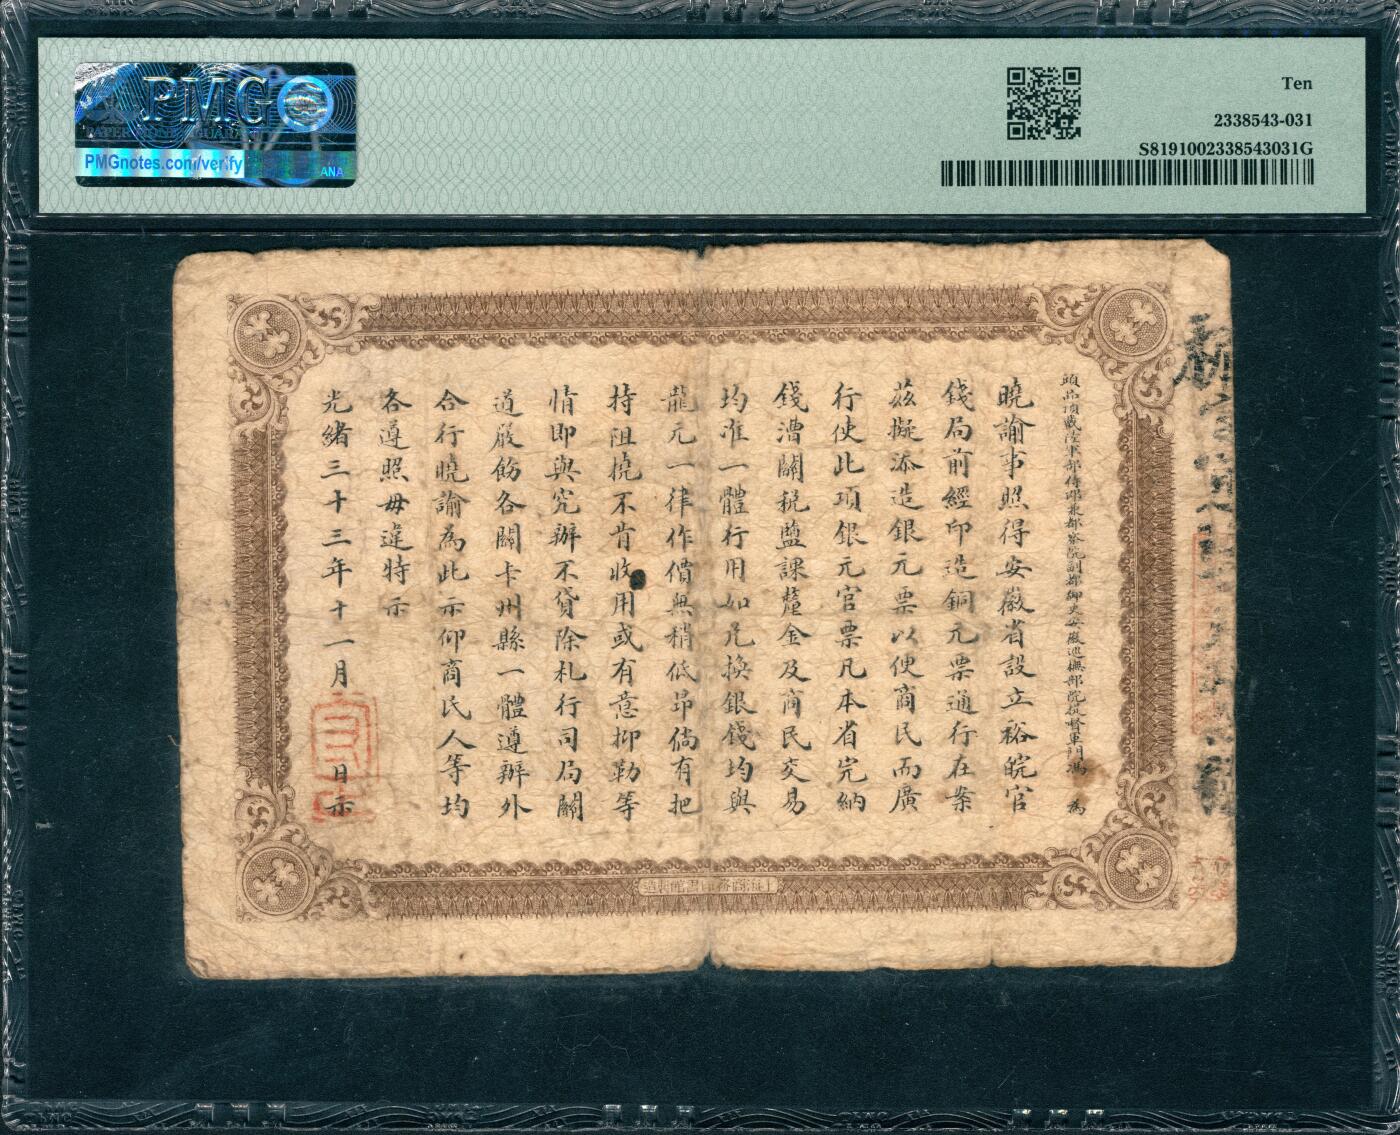 PMG
PAPER MONEY GUARANTY
PMGnotes.com/verify
ANA
Ten
2338543-031
S81910023385430​31G
頭品頂戴陸軍部侍郎兼都察院副都御史安徽巡撫部院提督軍門馮 為
曉諭事照得安徽省設立裕皖官
錢局前經印造銅元票通行在案
茲擬添造銀元票以便商民而廣
行使此項銀元官票凡本省完納
錢漕關稅鹽課釐金及商民交易
均准一體行用如兌換銀錢均與
龍元一律作價無稍低昂倘有把
持阻撓不肯收用或有意抑勒等
情即與究辦不貸除札行司局關
道嚴飭各關卡州縣一體遵辦外
合行曉諭為此示仰商民人等均
各遵照毋違特示
光緒三十三年十一月 日示
上海商務印書館製造